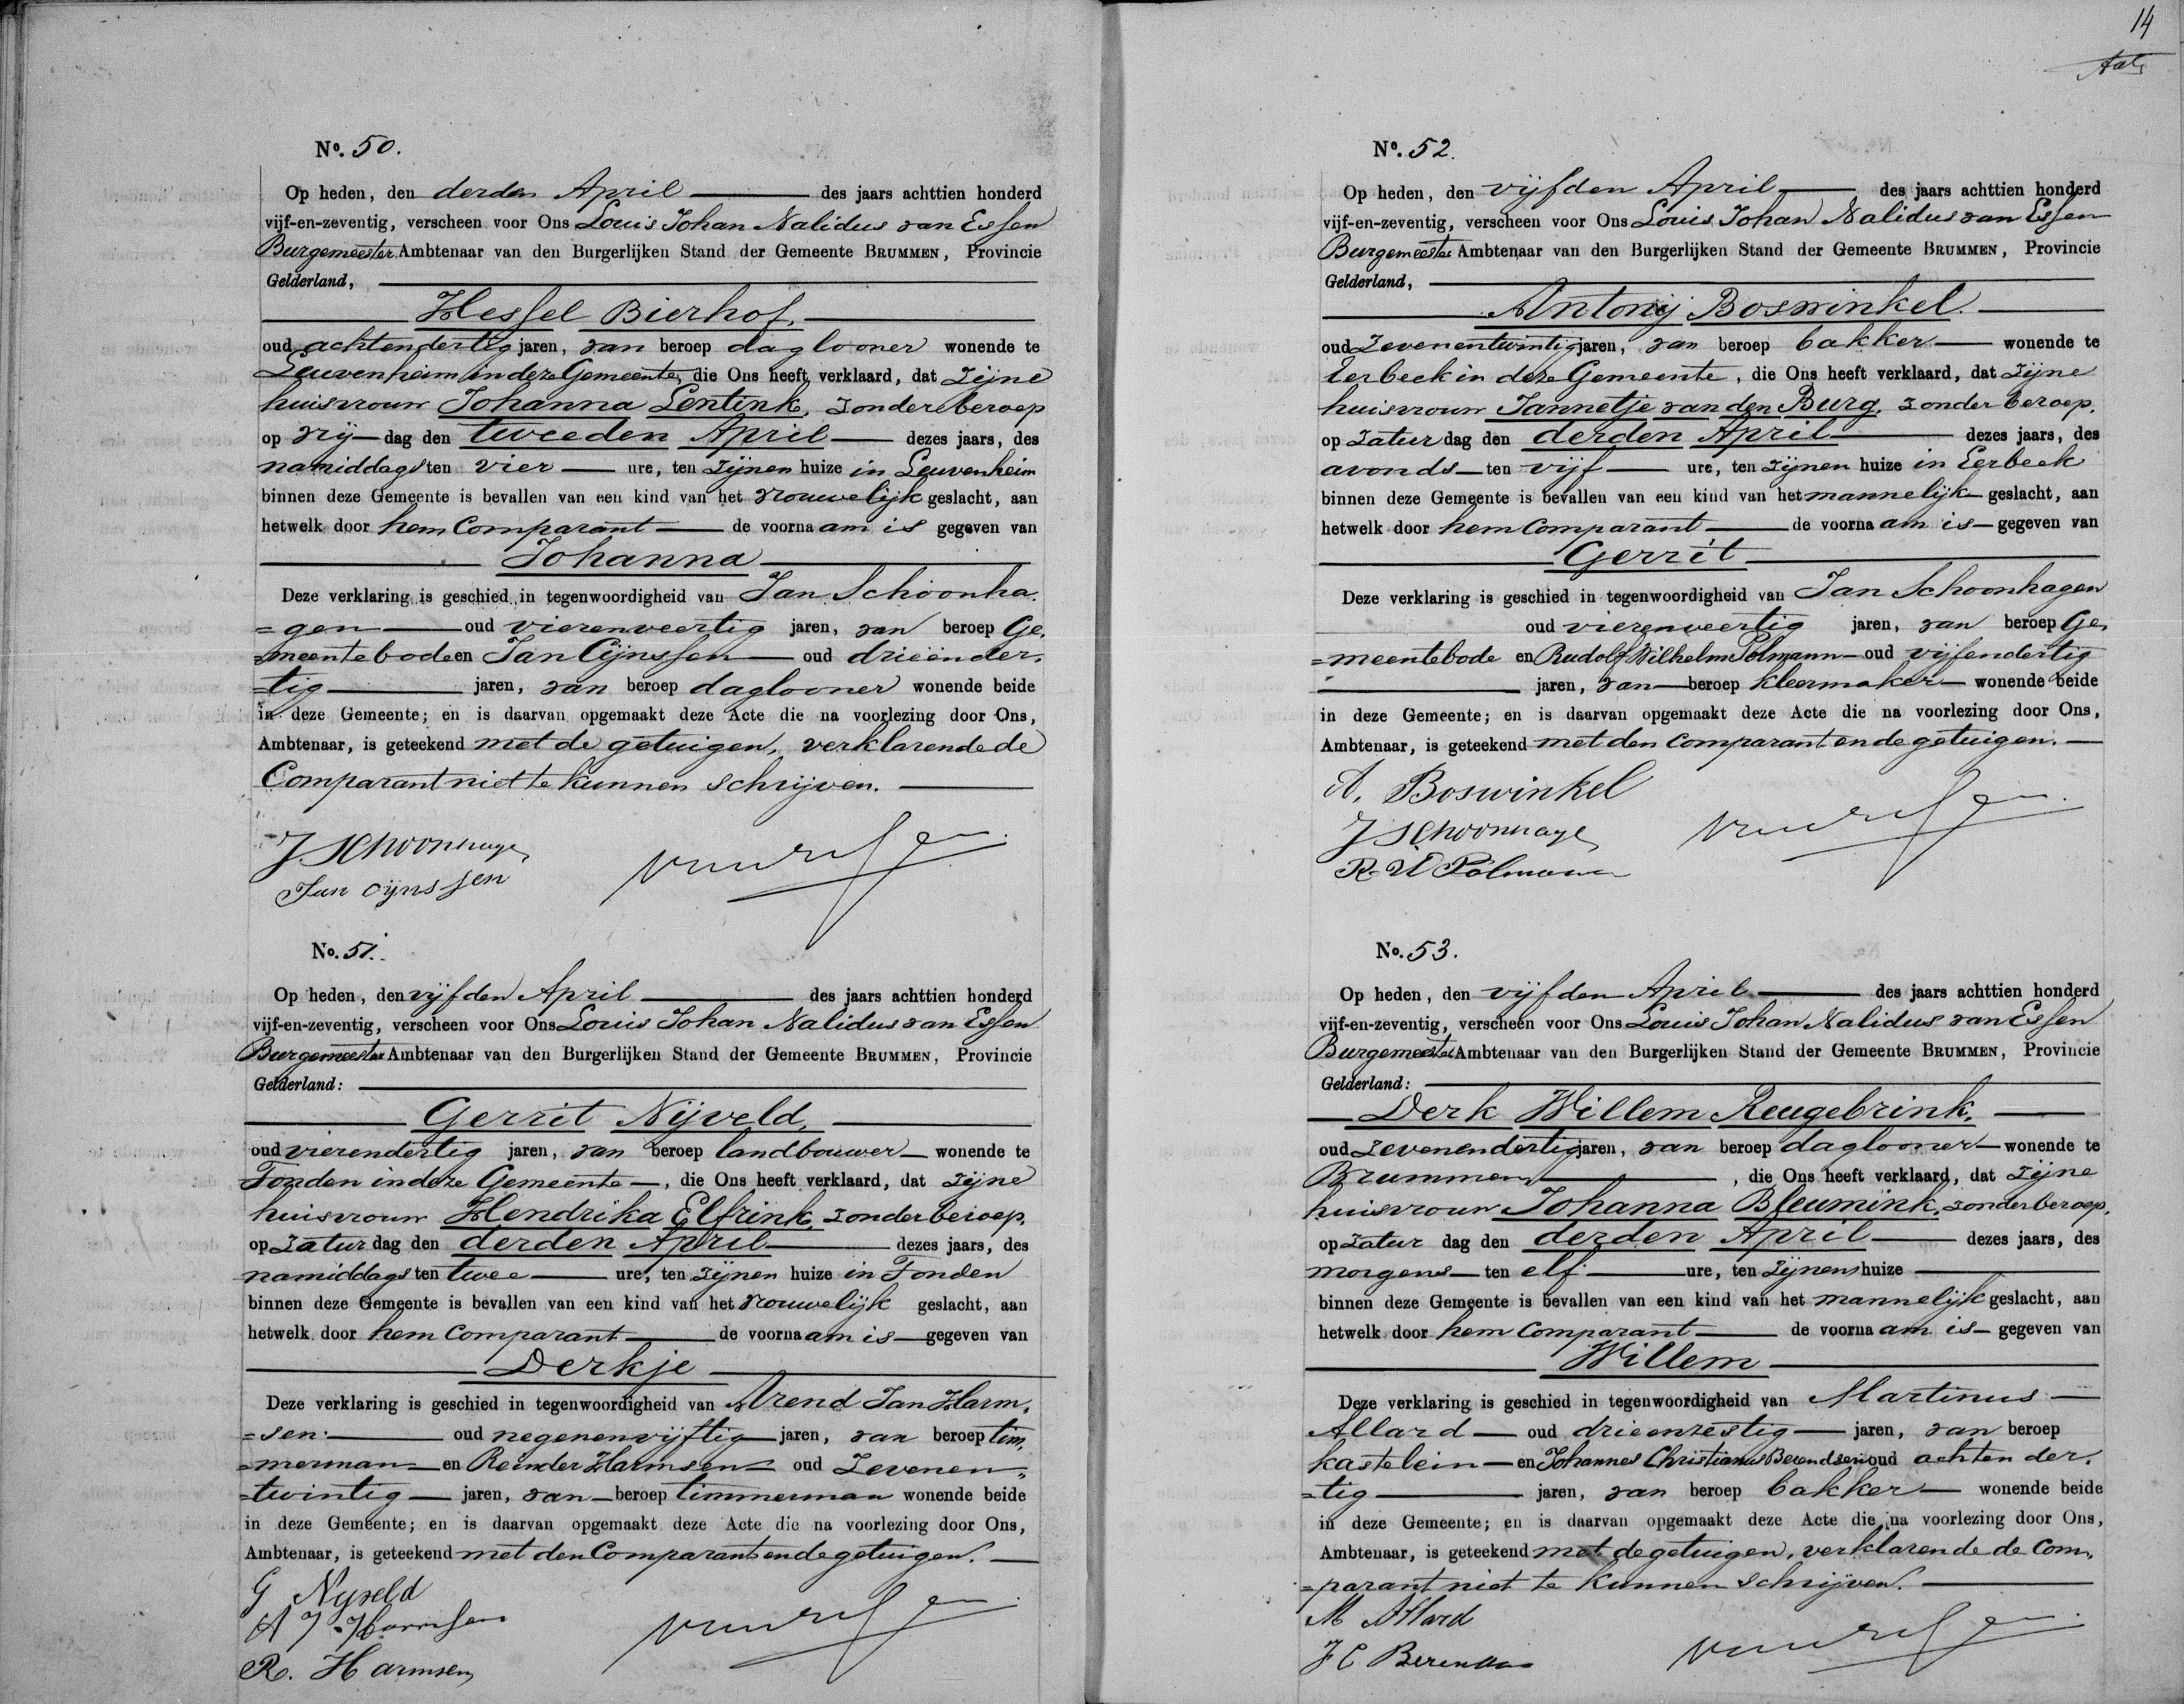 No. 50.
Op heden, den derden April des jaars achttien honderd
vijf-en-zeventig, verscheen voor Ons Louis Johan Nalidus van Essen
Burgemeester Ambtenaar van den Burgerlijken Stand der Gemeente BRUMMEN, Provincie
Gelderland,
Hessel Bierhof.
oud achtendertig jaren, van beroep daglooner wonende te
Leuvenheim in deze Gemeente, die Ons heeft verklaard, dat zijne
huisvrouw Johanna Lentink, zonder beroep
op vrij-dag den tweeden April dezes jaars, des
namiddags ten vier ure, ten zijnen huize in Leuvenheim
binnen deze Gemeente is bevallen van een kind van het vrouwelijk geslacht, aan
hetwelk door hem Comparant de voornaam is gegeven van
Johanna
Deze verklaring is geschied in tegenwoordigheid van Jan Schoonha-
=gen oud vierenveertig jaren, van beroep Ge-
=meentebode en Jan Cijnssen oud drieënder-
=tig jaren, van beroep daglooner wonende beide
in deze Gemeente; en is daarvan opgemaakt deze Acte die na voorlezing door Ons,
Ambtenaar, is geteekend met de getuigen, verklarende de
Comparant niet te kunnen schrijven.
J Schoonhage
Jan Cijnssen
No. 51.
Op heden, den vijfden April des jaars achttien honderd
vijf-en-zeventig, verscheen voor Ons Louis Johan Nalidus van Essen
Burgemeester Ambtenaar van den Burgerlijken Stand der Gemeente BRUMMEN, Provincie
Gelderland:
Gerrit Nijveld,
oud vierendertig jaren, van beroep landbouwer wonende te
Tonden in deze Gemeente, die Ons heeft verklaard, dat zijne
huisvrouw Hendrika Elfrink, zonder beroep,
op zaturdag den derden April dezes jaars, des
namiddags ten twee ure, ten zijnen huize in Tonden
binnen deze Gemeente is bevallen van een kind van het vrouwelijk geslacht, aan
hetwelk door hem Comparant de voornaam is gegeven van
Derkje
Deze verklaring is geschied in tegenwoordigheid van Arend Jan Harm-
=sen oud negenenvijftig jaren, van beroep tim-
=merman en Reinder Harmsen oud zevenen-
=twintig jaren, van beroep timmerman wonende beide
in deze Gemeente; en is daarvan opgemaakt deze Acte die na voorlezing door Ons,
Ambtenaar, is geteekend met den Comparant en de getuigen.
G Nyveld
A J Harmsen
R. Harmsen
14
No. 52.
Op heden, den vijfden April des jaars achttien honderd
vijf-en-zeventig, verscheen voor Ons Louis Johan Nalidus van Essen
Burgemeester Ambtenaar van den Burgerlijken Stand der Gemeente BRUMMEN, Provincie
Gelderland,
Antonij Boswinkel.
oud zevenentwintig jaren, van beroep bakker wonende te
Eerbeek in deze Gemeente, die Ons heeft verklaard, dat zijne
huisvrouw Jannetje van den Burg, zonder beroep,
op zaturdag den derden April dezes jaars, des
avonds ten vijf ure, ten zijnen huize in Eerbeek
binnen deze Gemeente is bevallen van een kind van het mannelijk geslacht, aan
hetwelk door hem Comparant de voornaam is gegeven van
Gerrit
Deze verklaring is geschied in tegenwoordigheid van Jan Schoonhagen
oud vierenveertig jaren, van beroep Ge-
=meentebode en Rudolf Wilhelm Polmann oud vijfendertig
jaren, van beroep kleermaker wonende beide
in deze Gemeente; en is daarvan opgemaakt deze Acte die na voorlezing door Ons,
Ambtenaar, is geteekend met den Comparant en de getuigen.
A. Boswinkel
J Schoonhage
R. W Polmann
No. 53.
Op heden, den vijfden April des jaars achttien honderd
vijf-en-zeventig, verscheen voor Ons Louis Johan Nalidus van Essen
Burgemeester Ambtenaar van den Burgerlijken Stand der Gemeente BRUMMEN, Provincie
Gelderland:
Derk Willem Reugebrink,
oud zevenendertig jaren, van beroep daglooner wonende te
Brummen, die Ons heeft verklaard, dat zijne
huisvrouw Johanna Bleumink, zonder beroep,
op zatur dag den derden April dezes jaars, des
morgens ten elf ure, ten zijnen huize
binnen deze Gemeente is bevallen van een kind van het mannelijk geslacht, aan
hetwelk door hem Comparant de voornaam is gegeven van
Willem
Deze verklaring is geschied in tegenwoordigheid van Martinus
Allard oud drieenzestig jaren, van beroep
kastelein en Johannes Christianus Berendsen oud achtender-
=tig jaren, van beroep bakker wonende beide
in deze Gemeente; en is daarvan opgemaakt deze Acte die na voorlezing door Ons,
Ambtenaar, is geteekend met de getuigen, verklarende de Com-
=parant niet te kunnen schrijven.
M Allard
J C Berendsen